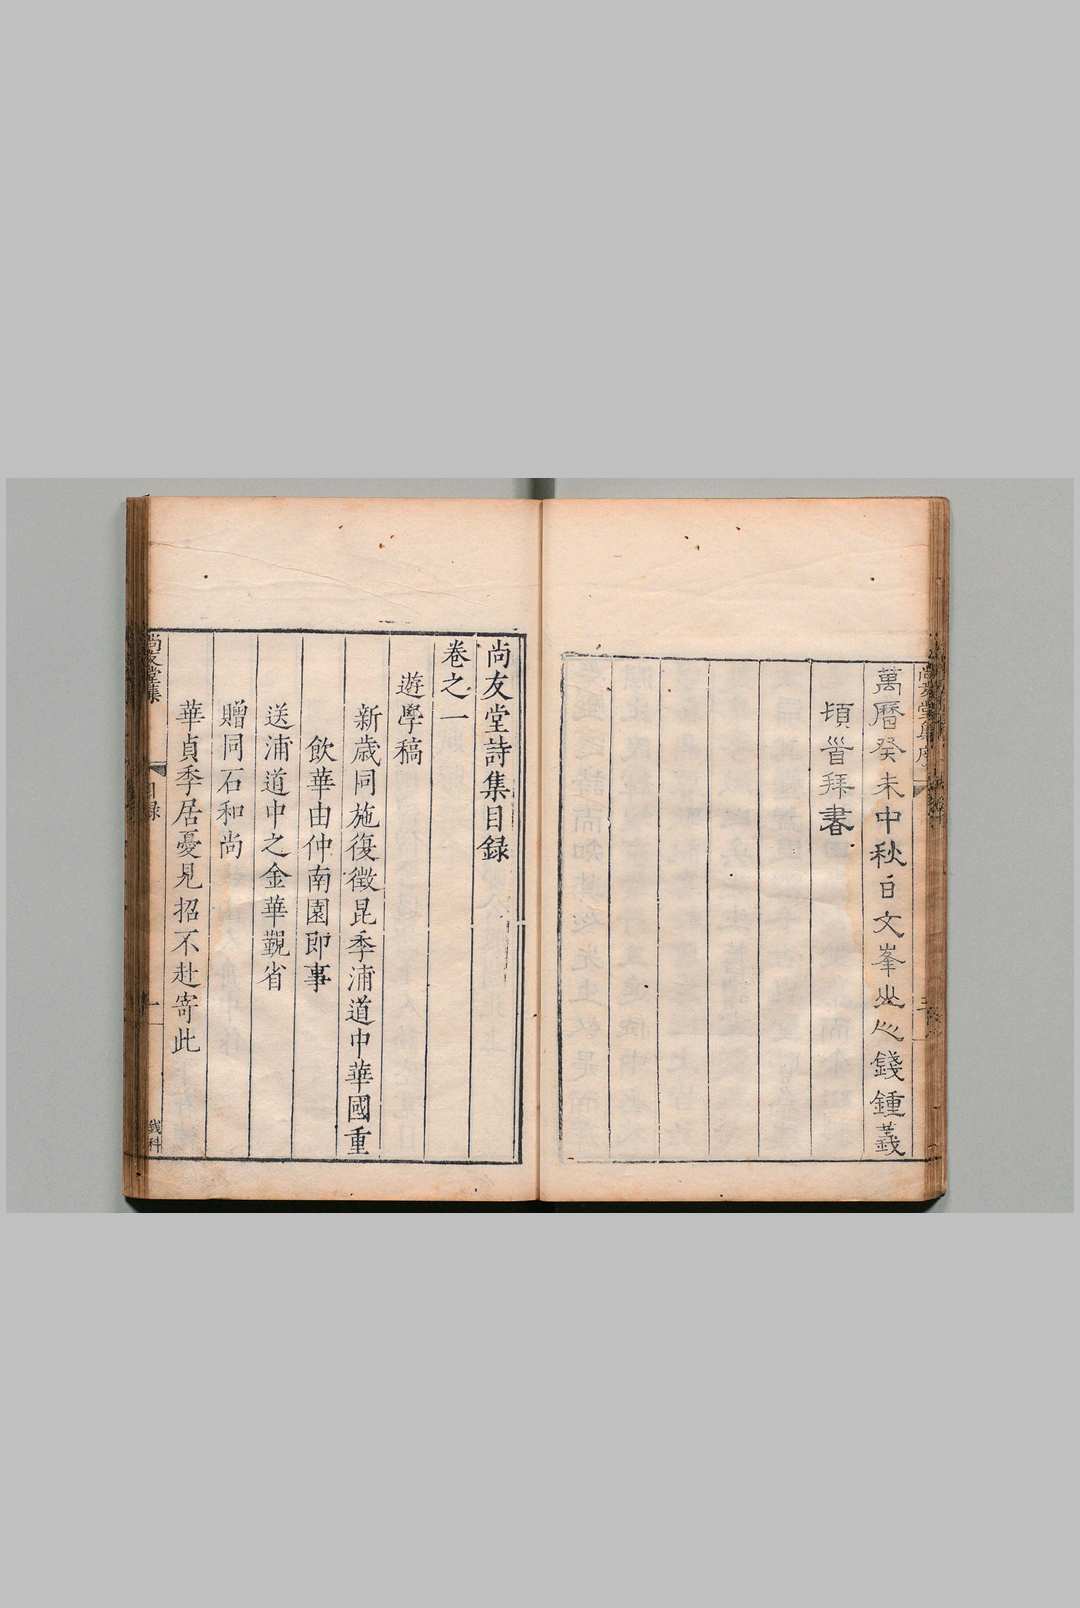 萬曆癸未中秋日文峯山人錢鍾義
頓首拜書
尚友堂詩集目録
卷之一
遊學稿
新歲同施復徵昆季浦道中華國重
飲華由仲南園即事
送浦道中之金華覲省
贈同石和尚
華貞季居憂見招不赴寄此
尚友堂集
目録
一